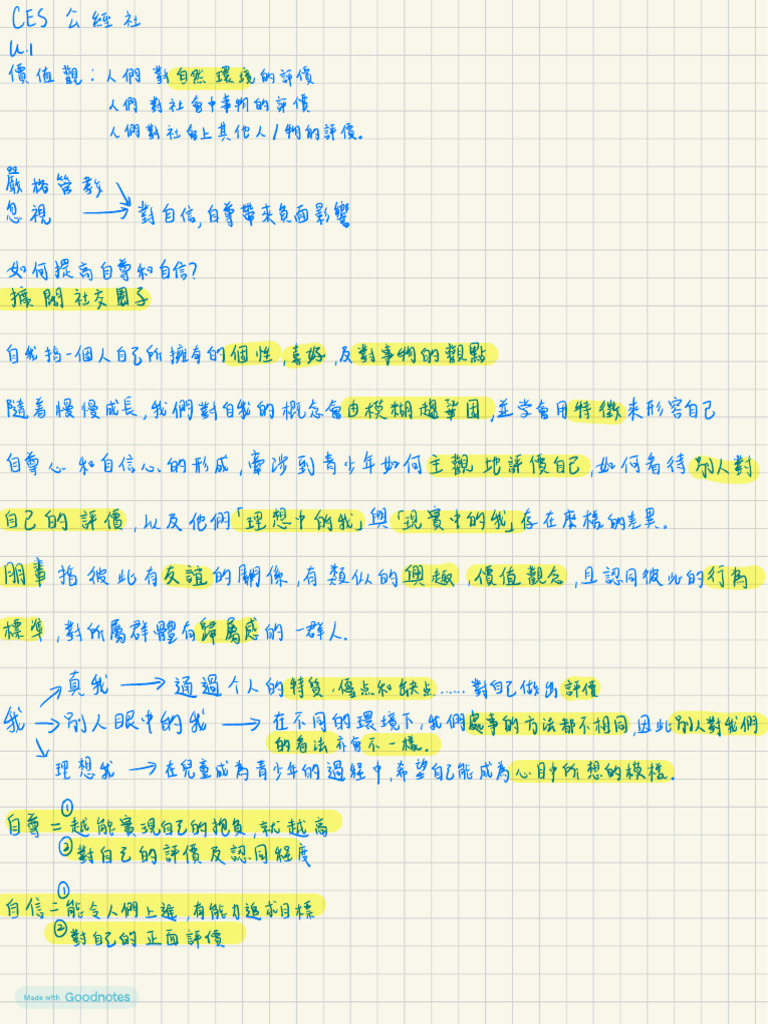 CES 公經社
U.1
價值觀：人們對自然環境的評價
人們對社會中事物的評價
人們對社會上其他人/物的評價。
嚴格管教
忽視 → 對自信,自尊帶來負面影響
如何提高自尊和自信?
擴闊社交圈子
自我指一個人自己所擁有的個性,喜好,及對事物的觀點
隨着慢慢成長,我們對自我的概念會由模糊趨鞏固,並學會用特徵來形容自己
自尊心和自信心的形成,牽涉到青少年如何主觀地評價自己,如何看待別人對
自己的評價,以及他們「理想中的我」與「現實中的我」存在麼樣的差異.
朋輩指彼此有友誼的關係,有類似的興趣,價值觀念,且認同彼此的行為
標準,對所屬群體有歸屬感的一群人.
真我 → 通過个人的特質,優点和缺点……對自己做出評價
我 → 別人眼中的我 → 在不同的環境下,我們處事的方法都不相同,因此別人對我們
的看法亦會不一樣.
理想我 → 在兒童成為青少年的過程中,希望自己能成為心目中所想的模樣.
自尊=①越能實現自己的抱負,就越高
②對自己的評價及認同程度
自信=①能令人們上進,有能力追求目標
②對自己的正面評價
Made with Goodnotes